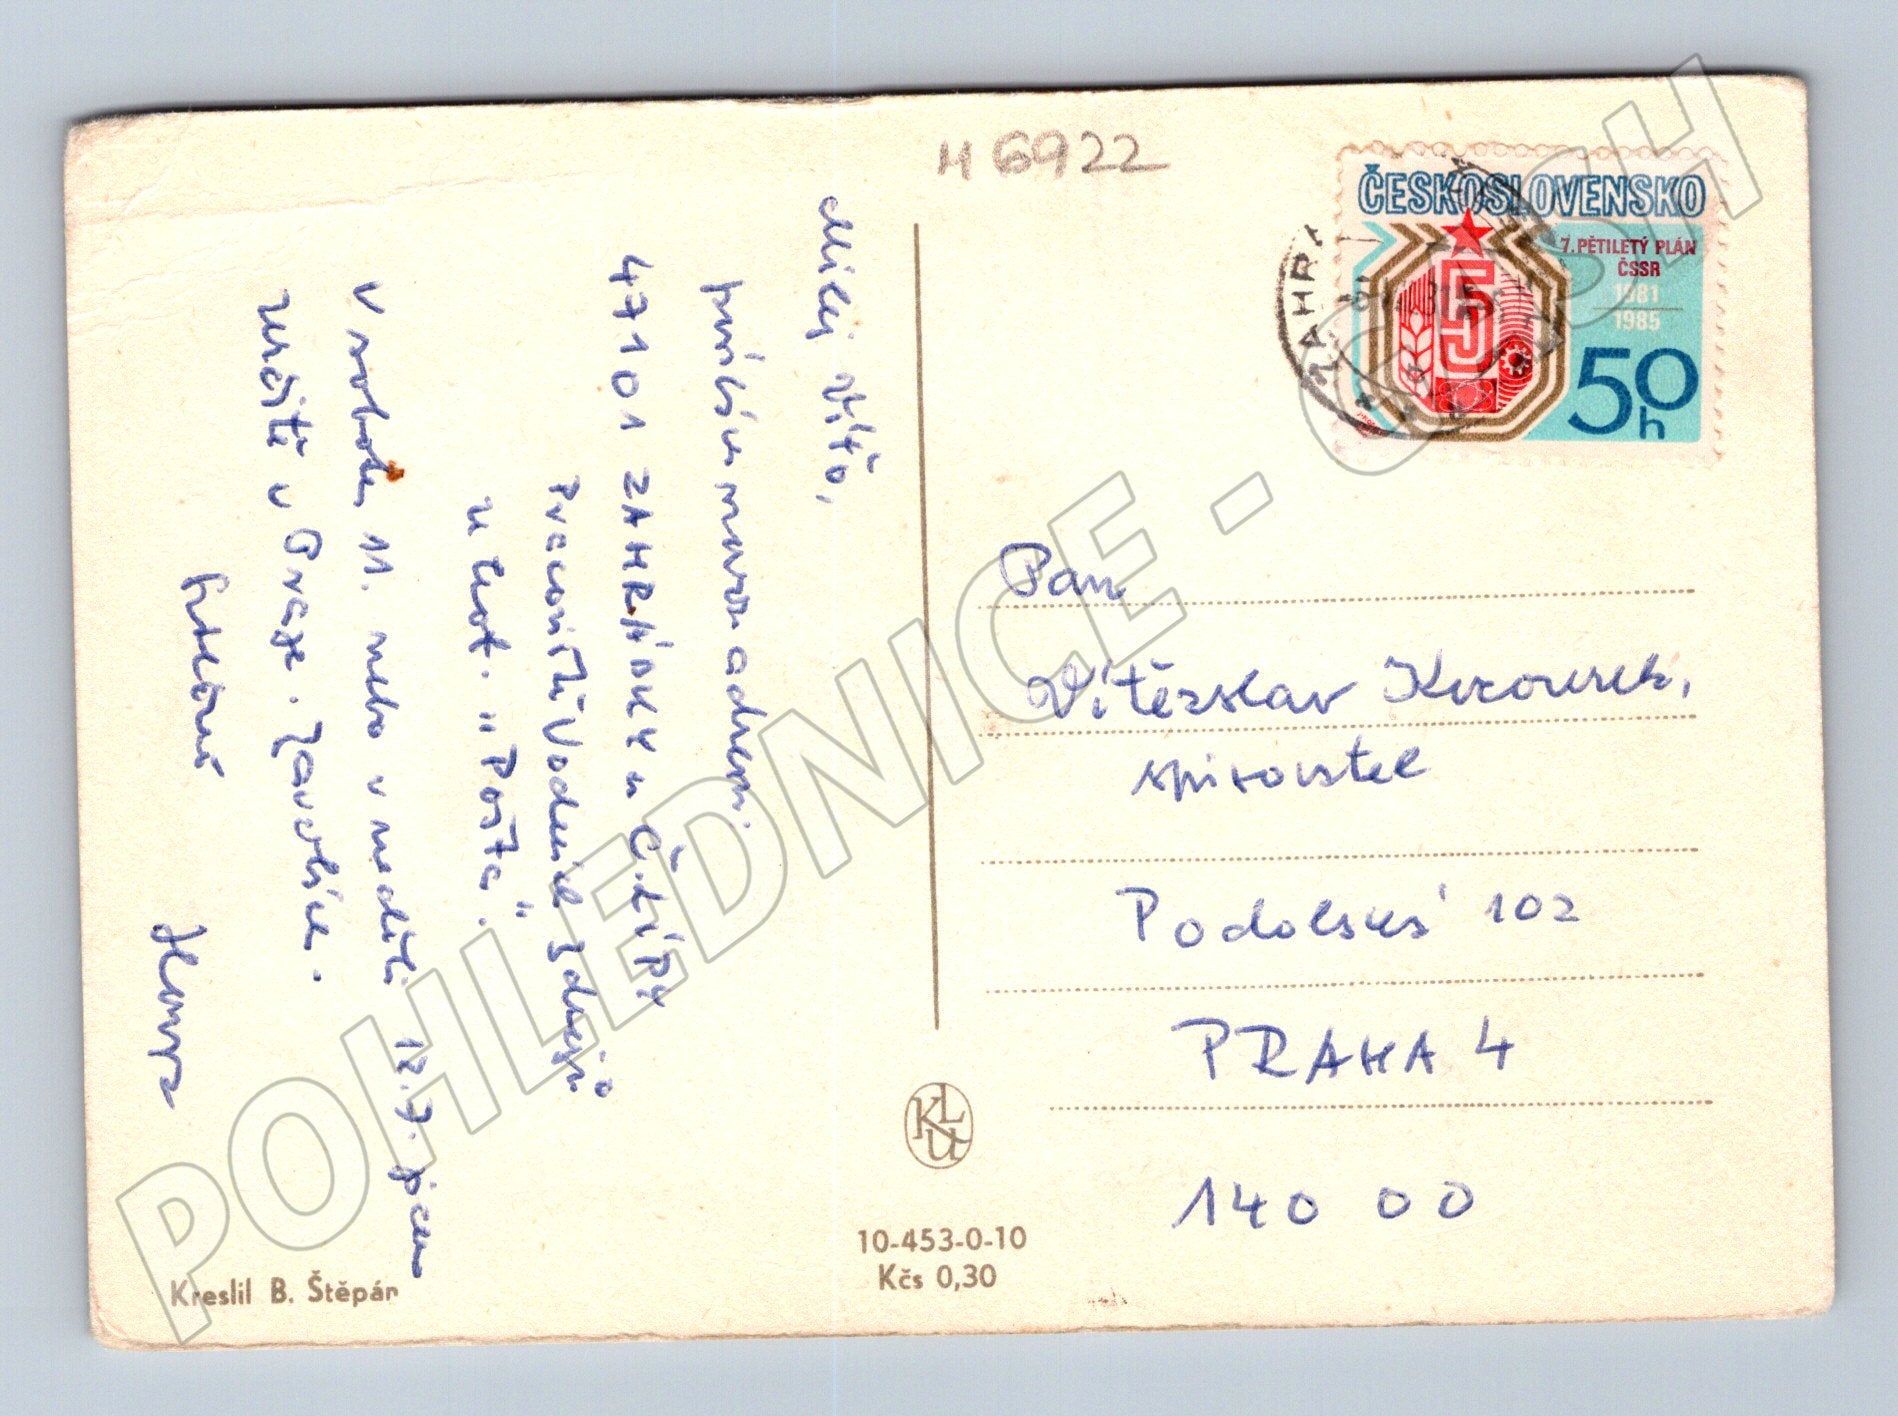 H 6922
ČESKOSLOVENSKO
7. PĚTILETÝ PLÁN
ČSSR
1981
1985
50
h
5
ZAHRÁ
Milý Víťo,
novou adresu.
47101 ZAHRÁDKY u Č. LÍPY
Pracoviště Vodních zdrojů
u "Pošta".
V sobotu 11. nebo v neděli 12.7. jsem
určitě v Praze. Zavolám.
Honza
Pan
Vítězslav
spisovatel
Podolská 102
PRAHA 4
140 00
KLU
10-453-0-10
Kčs 0,30
Kreslil B. Štěpán
POHLEDNICE - CASH